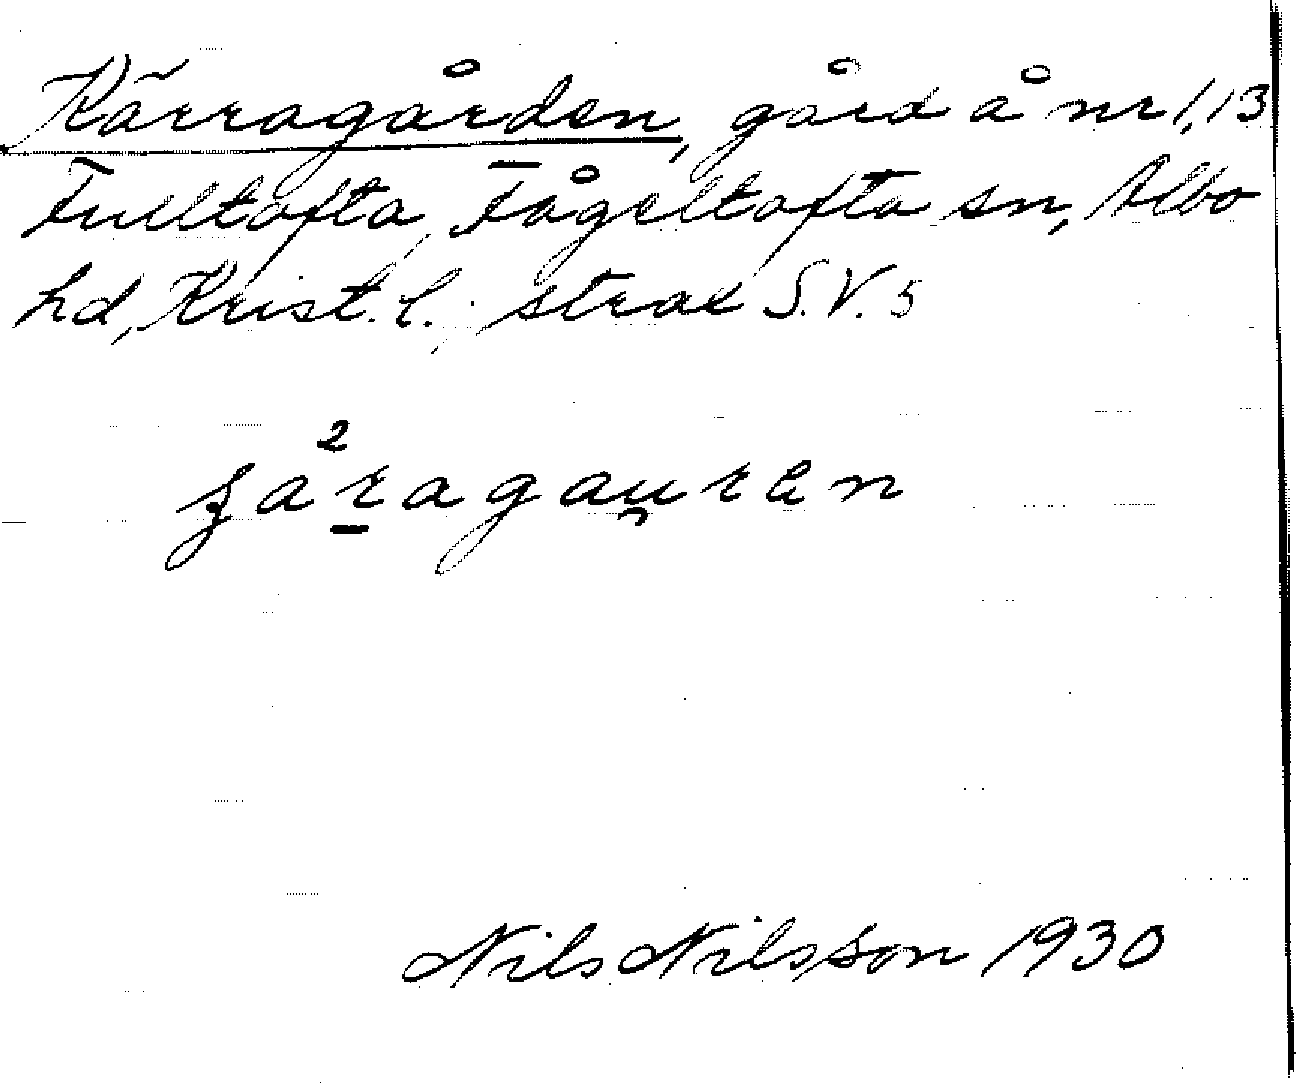 Kärragården, gård å nr 1, 13
Fulltofta, Fågeltofta sn, Albo
hd, Krist. l. strax S.V. 5
2
såragau̯ren
Nils Nilsson 1930